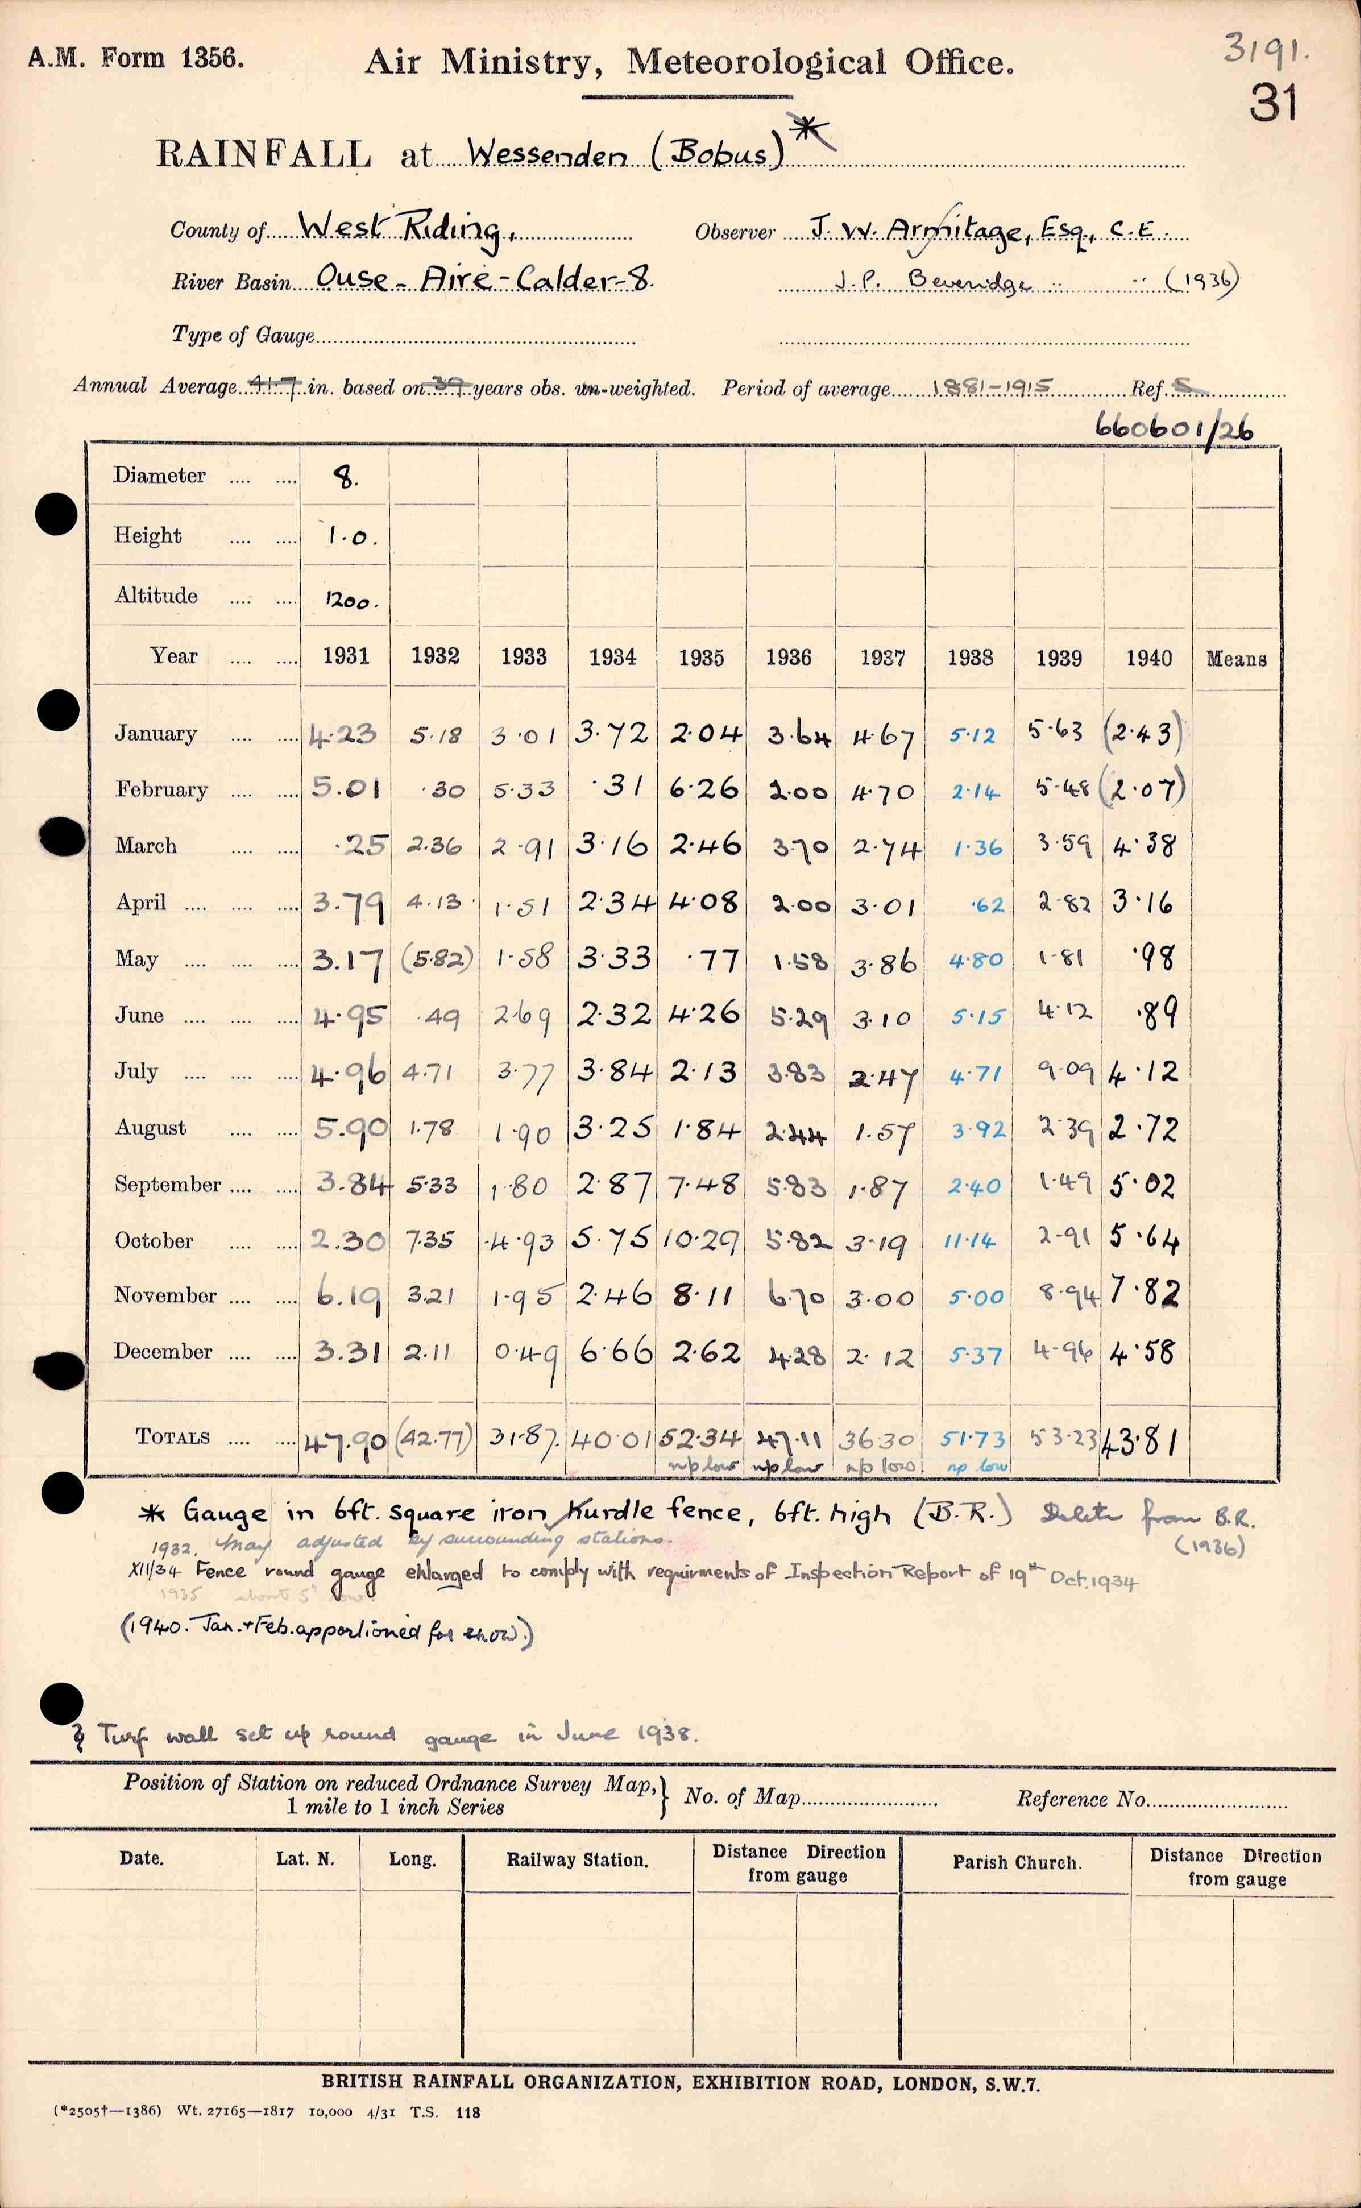 A.M. Form 1356.
Air Ministry, Meteorological Office.
3191.
31
RAINFALL at Wessenden (Bobus) *
County of West Riding,
Observer J. W. Armitage, Esq., C.E.
River Basin Ouse - Aire - Calder - 8.
J. P. Beveridge " " (1936)
Type of Gauge
Annual Average 41.7 in. based on 39 years obs. un-weighted. Period of average 1881-1915 Ref. S
660601/26
Diameter .... .... 8.
Height .... .... 1.0.
Altitude .... .... 1200.
Year .... .... 1931 1932 1933 1934 1935 1936 1937 1938 1939 1940 Means
January .... .... 4.23 5.18 3.01 3.72 2.04 3.64 4.67 5.12 5.63 (2.43)
February .... .... 5.01 .30 5.33 .31 6.26 2.00 4.70 2.14 5.48 (2.07)
March .... .... .25 2.36 2.91 3.16 2.46 3.70 2.74 1.36 3.59 4.38
April .... .... .... 3.79 4.13 1.51 2.34 4.08 2.00 3.01 .62 2.82 3.16
May .... .... .... 3.17 (5.82) 1.58 3.33 .77 1.58 3.86 4.80 1.81 .98
June .... .... .... 4.95 .49 2.69 2.32 4.26 5.29 3.10 5.15 4.12 .89
July .... .... .... 4.96 4.71 3.77 3.84 2.13 3.83 2.47 4.71 9.09 4.12
August .... .... 5.90 1.78 1.90 3.25 1.84 2.44 1.57 3.92 2.39 2.72
September .... .... 3.84 5.33 1.80 2.87 7.48 5.83 1.87 2.40 1.49 5.02
October .... .... 2.30 7.35 4.93 5.75 10.29 5.82 3.19 11.14 2.91 5.64
November .... .... 6.19 3.21 1.95 2.46 8.11 6.70 3.00 5.00 8.94 7.82
December .... .... 3.31 2.11 0.49 6.66 2.62 4.28 2.12 5.37 4.96 4.58
TOTALS .... .... 47.90 (42.77) 31.87 40.01 52.34 47.11 36.30 51.73 53.23 43.81
np low np low np low np low
* Gauge in 6ft. square iron Hurdle fence, 6ft. high (B.R.) Delete from B.R.
(1936)
1932. May adjusted by surrounding stations.
XII/34 Fence round gauge enlarged to comply with requirments of Inspection Report of 19th Oct. 1934
1935 about 5" low.
(1940. Jan. + Feb. apportioned for snow.)
& Turf wall set up round gauge in June 1938.
Position of Station on reduced Ordnance Survey Map, } No. of Map Reference No.
1 mile to 1 inch Series
Date. Lat. N. Long. Railway Station. Distance Direction from gauge Parish Church. Distance Direction from gauge
BRITISH RAINFALL ORGANIZATION, EXHIBITION ROAD, LONDON, S.W.7.
(*2505†—1386) Wt. 27165—1817 10,000 4/31 T.S. 118